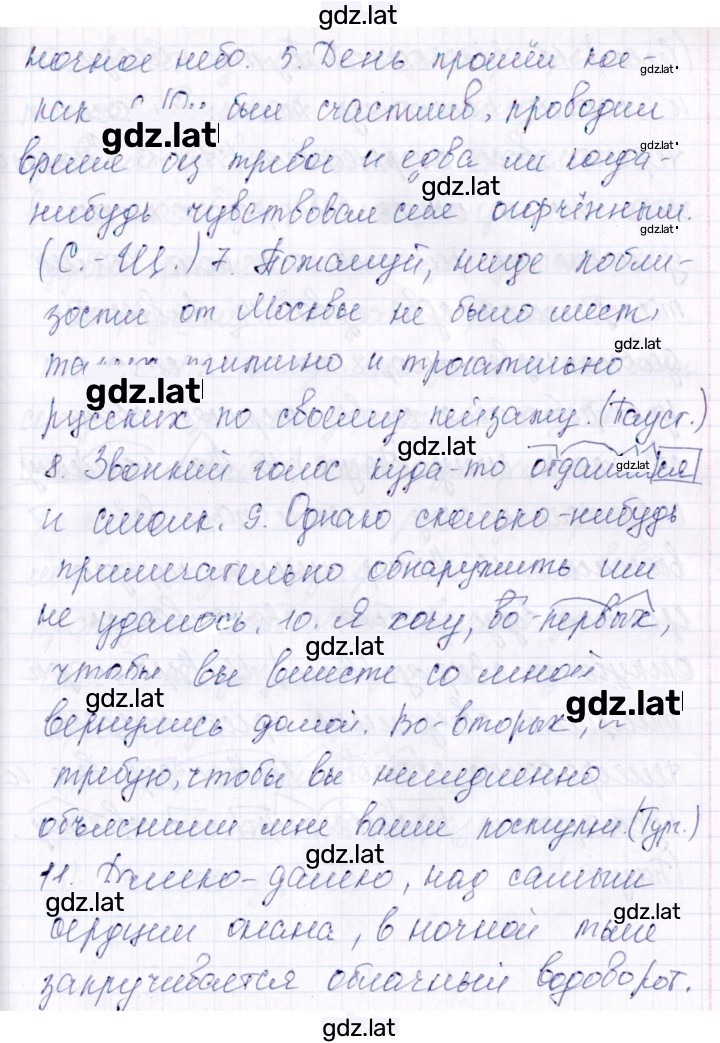 gdz.lat
ночное небо. 5. День прошёл кое-
gdz.lat
как был счастлив, проводил
gdz.lat
gdz.lat
время без тревог и едва ли когда-
gdz.lat
нибудь чувствовал себя огорчённым.
gdz.lat
(С. Щ.) 7. Пожалуй, нигде побли-
зости от Москвы не было мест,
gdz.lat
типично и трогательно
gdz.lat
русских по своему пейзажу. (Пауст.)
gdz.lat
8. Звонкий голос куда-то отдалился
gdz.lat
и смолк. 9. Однако сколько-нибудь
примечательно обнаружить им
не удалось. 10. Я хочу, во-первых,
gdz.lat
чтобы вы вместе со мной
gdz.lat
вернулись домой. Во-вторых, я
gdz.lat
требую, чтобы вы немедленно
объяснили мне ваши поступки. (Тург.)
gdz.lat
11. Далеко-далеко, над самым
gdz.lat
gdz.lat
сердцем океана, в ночной тьме
закручивается облачный водоворот.
gdz.lat